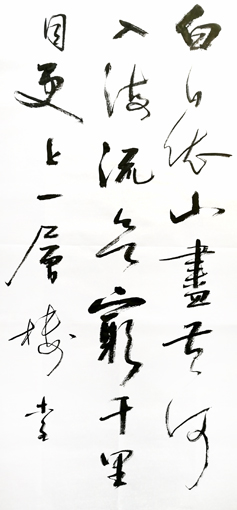 白日依山盡黃河
入海流欲窮千里
目更上一層樓